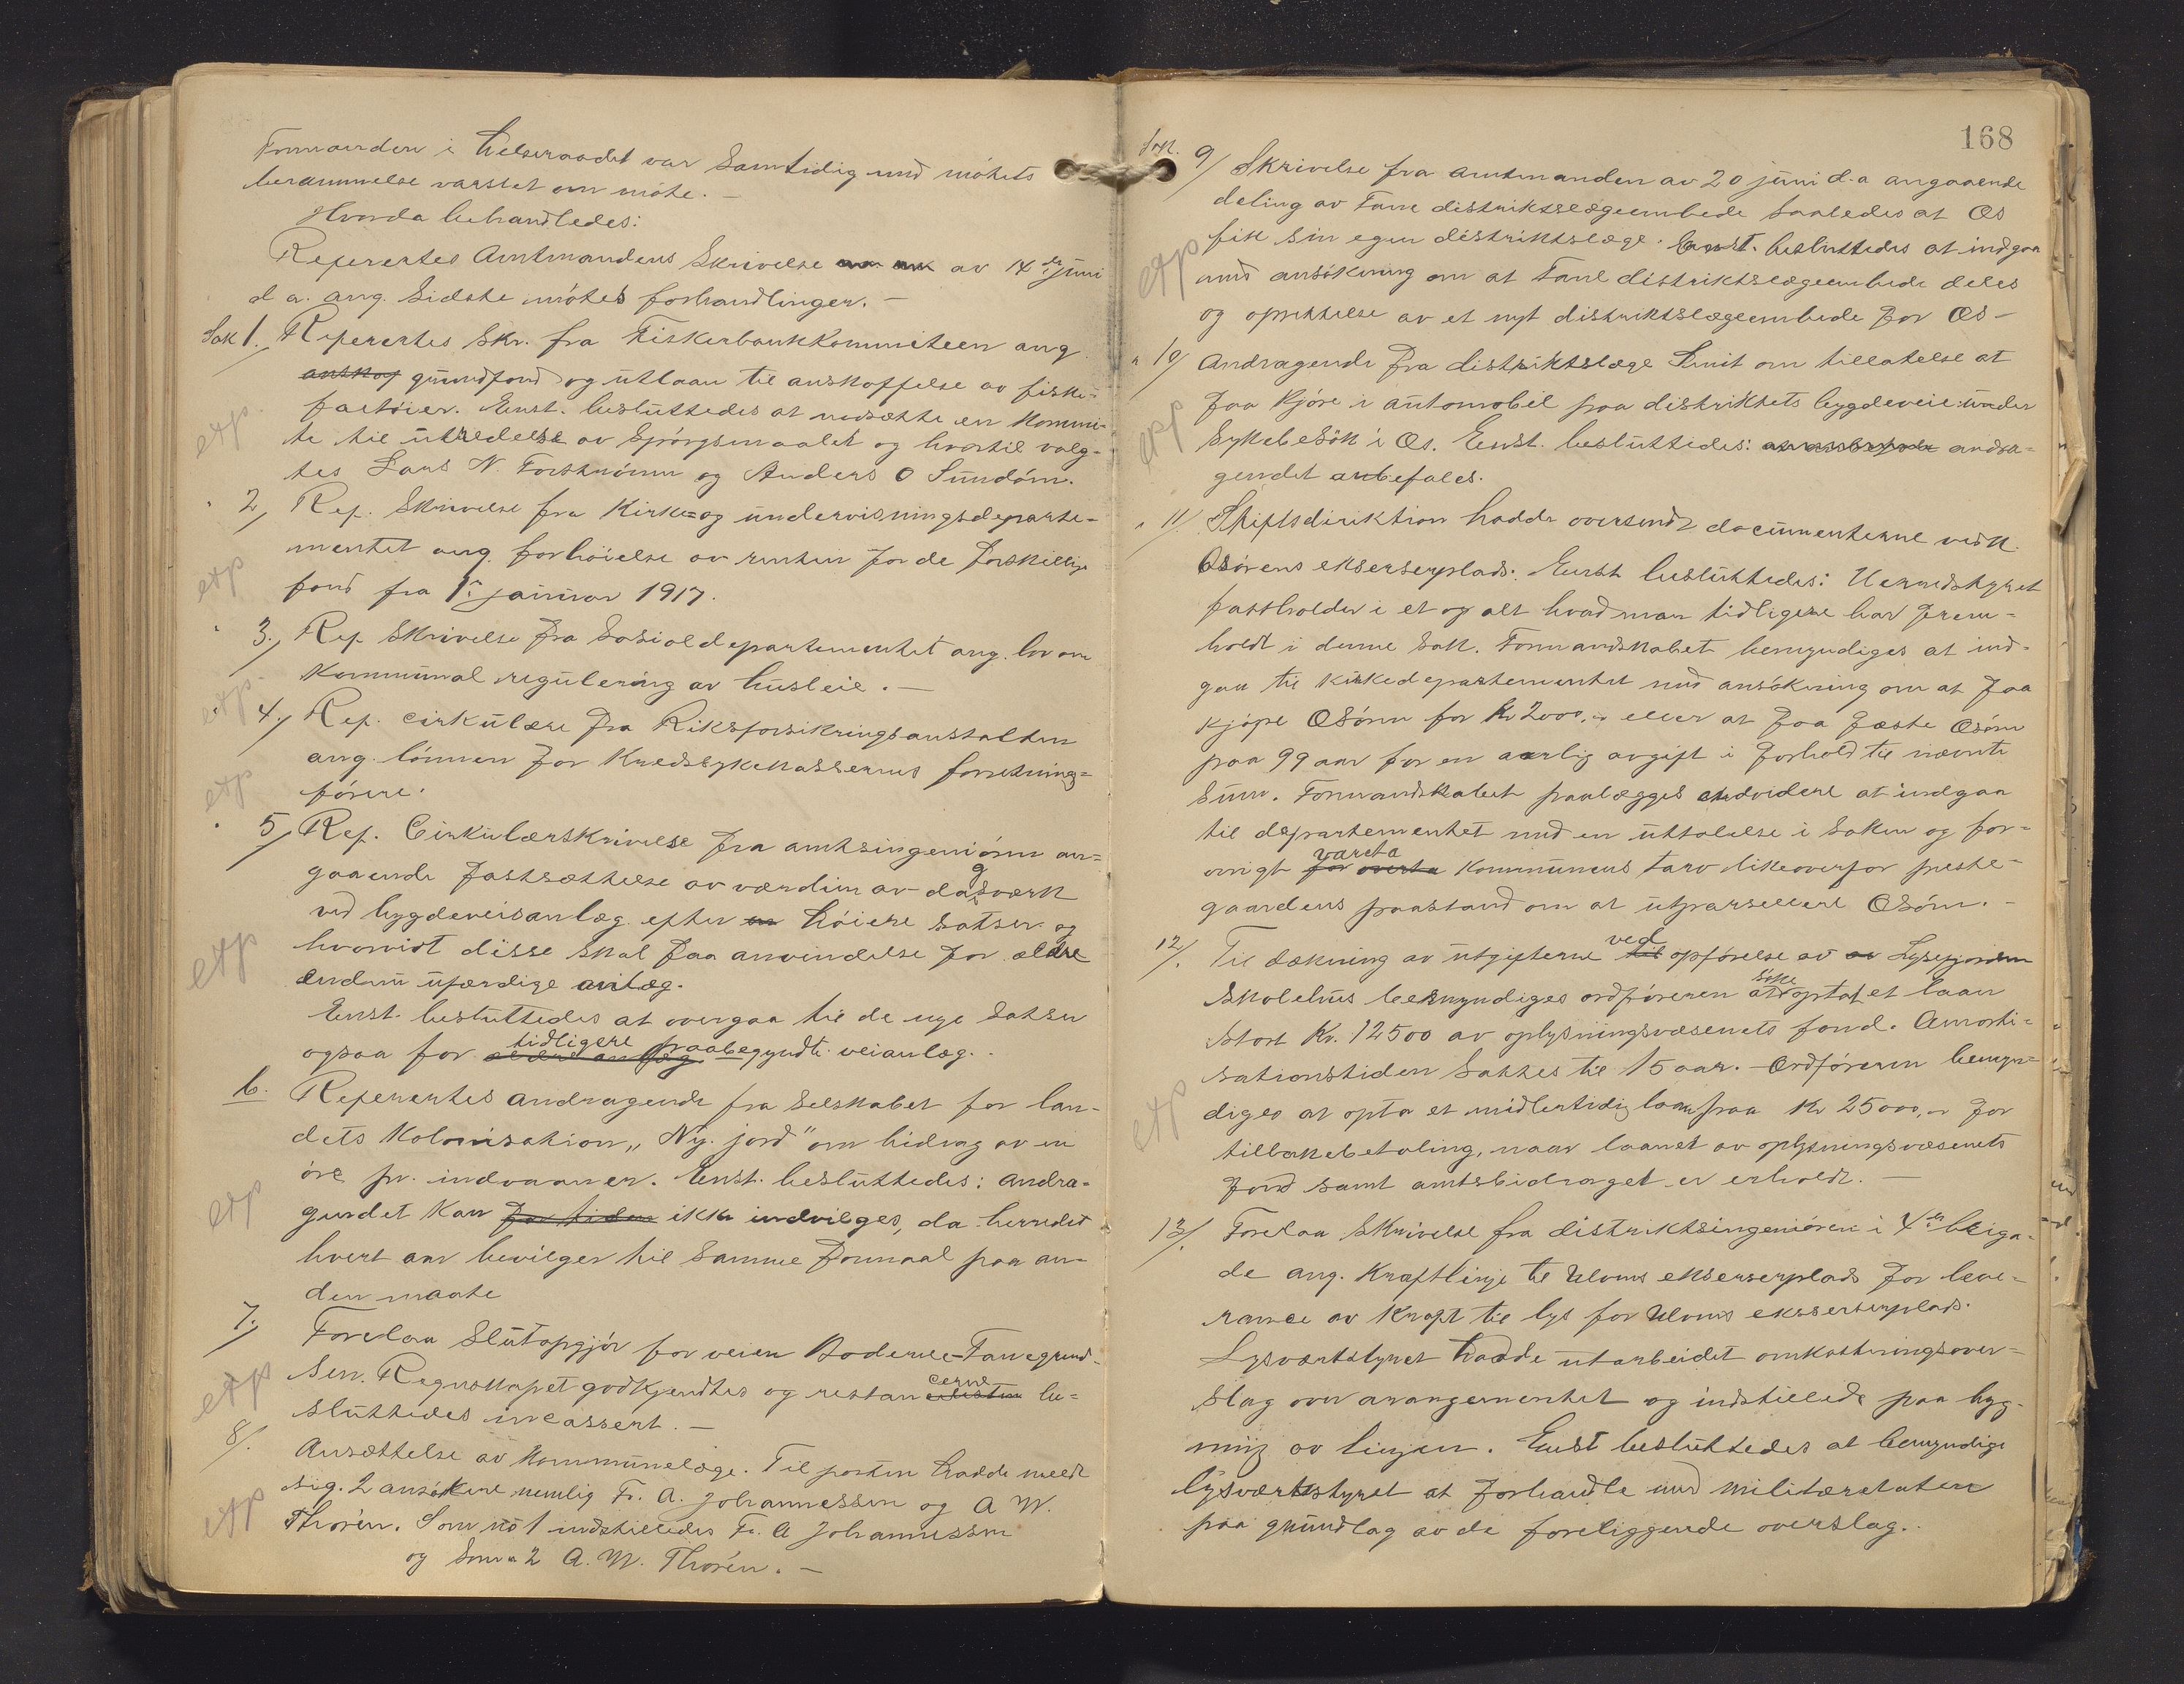 Formanden i helseraadet var samtidig med møtets
berammelse varslet om møte. –
Hvorda behandledes:
Refertes Amtmandens Skrivelse av 14de juni
d a. ang. sidste møtes forhandlinger. –
Sak 1. Refertes skr. fra Fiskerbankkommiteen ang.
anskaf grundfond og utlaan til anskaffelse av fiske-
fartøier. Enst. besluttedes at nedsætte en kommi-
te til utredelse av spørgsmaalet og hvortil valg-
tes Lars N. Forstrønen og Anders O Sundøen.
2, Ref. Skrivelse fra Kirke- og undervisningsdeparte-
mentet ang. forhøielse av renten for de forskjellige
fond fra 1ste januar 1917.
3, Ref Skrivelse fra Sosialdepartementet ang. lov om
kommunal regulering av husleie. –
4, Ref. cirkulære fra Riksforsikringsanstalten
ang. lønnen for Kredssykekassernes forretnings-
førere.
5, Ref. Cirkulærskrivelse fra amtsingeniøren an-
gaaende fastsættelse av værdien av dagsværk
ved bygdeveisanlæg efter en høiere satser og
hvorvidt disse skal faa anvendelse for ældre
endnu ufærdige anlæg.
Enst. besluttedes at overgaa til de nye satser
ogsaa for ældre anlæg tidligere paabegyndte veianlæg.
6. Refertes andragende fra selskabet for lan-
dets kolonisation „Ny jord" om bidrag av en
øre pr. indvaaner. Enst. besluttedes: Andra-
gendet kan for tiden ikke indvilges, da herredet
hvert aar bevilger til samme formaal paa an-
den maate
7, Forelaa slutopgjør for veien Hodene-Tavegrund-
sen. Regnskapet godkjendtes og restancerne be-
sluttedes incassert. –
8/. Ansættelse av Kommunelæge. Til posten hadde meldt
sig. 2 ansøkere nemlig Fr. A. Johannessen og A W.
Thorén. Som no 1 indstilledes Fr. A Johannessen
og som " 2 A. W. Thorén. –
etp
etp
etp
etp
etp
etp
etp
etp
168
Sak. 9/ Skrivelse fra amtmanden av 20 juni d.a angaaende
deling av Fane distriktslægeembede saaledes at Os
fik sin egen distriktslæge. Enst. besluttedes at indgaa
med ansøkning om at Fane distriktslægeembede deles
og oprettelse av et nyt distriktslægeembede for Os –
" 10/ Andragende fra distriktslæge Smit om tillatelse at
faa kjøre i automobil paa distriktets bygdeveie under
sykebesøk i Os. Enst. besluttedes: at anbefale andra-
gendet anbefales.
" 11/ Stiftsdirektion hadde oversendt documenterne vedk.
Osørens ekserserplads. Enst. besluttedes: Herredstyret
fastholder i et og alt hvad man tidligere har frem-
holdt i denne sak. Formandskabet bemyndiges at ind-
gaa til kirkedepartementet med ansøkning om at faa
kjøpe Osøren for kr 2000,- eller at faa fæste Osøren
paa 99 aar for en aarlig avgift i forhold til nævnte
sum. Formandskabet paalægges endvidere at indgaa
til departementet med en uttalelse i saken og for-
øvrigt for overta vareta kommunens tarv likeoverfor preste-
gaardens paastand om at utparsellere Osøren. –
12/. Til dækning av utgifterne til ved opførelse av av Lysefjorden
skolehus bemyndiges ordføreren at søke opta et laan
stort Kr. 12500 av oplysningsvæsenets fond. Amorti-
sationstiden sættes til 15 aar. – Ordføreren bemyn-
diges at opta et midlertidig laan paa Kr 25000,- for
tilbakebetaling, naar laanet av oplysningsvæsenets
fond samt amtsbidraget er erholdt. –
13/. Forelaa skrivelse fra distriktsingeniøren i 4de briga-
de ang. Kraftlinje til Ulvens ekserserplads for leve-
rance av kraft til lys for Ulvens ekserserplads.
Lysværkstyret hadde utarbeidet omkostningsover-
slag over arangementet og indstillede paa byg-
ning av linjen. Enst besluttedes at bemyndige
lysværkstyret at forhandle med militæretaten
paa grundlag av de foreliggende overslag.
etp
etp
etp